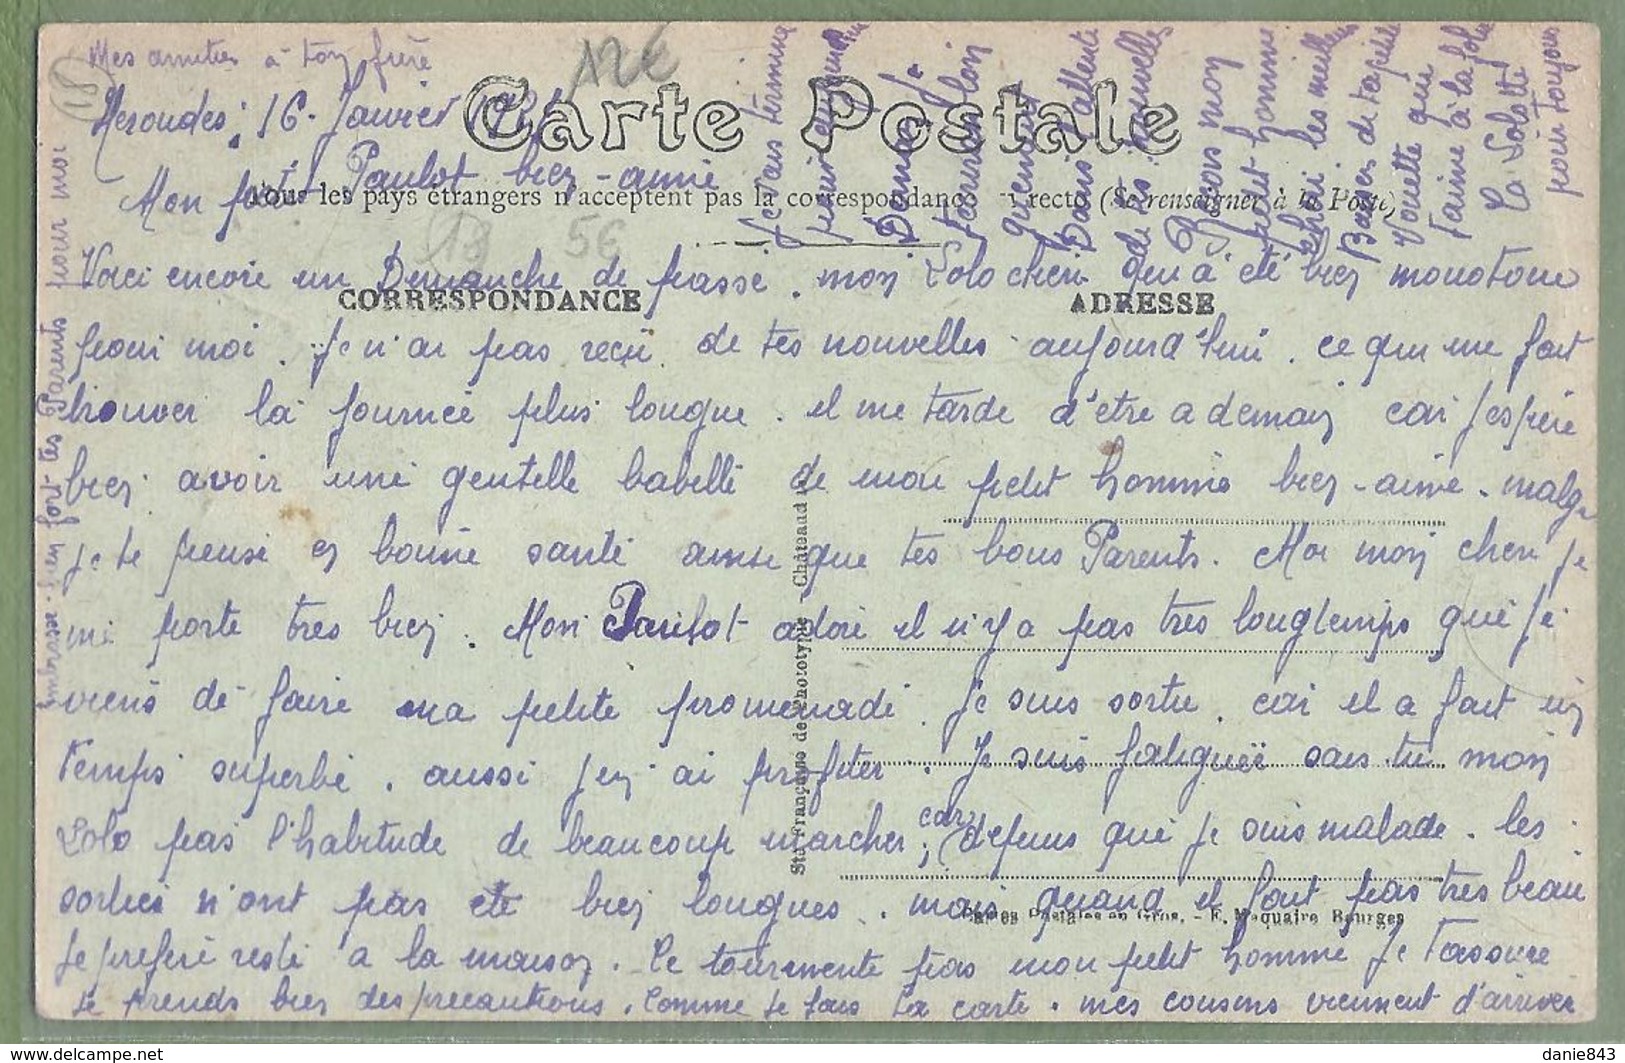 Mes amities à ton frère
12€
18
Meroudes, 16. Janvier
Carte Postale
Mon petit Paulot bien-aimé
Tous les pays étrangers n'acceptent pas la correspondance recto (Se renseigner à la Poste)
18 5€
CORRESPONDANCE
ADRESSE
Voici encore un Demanche de passé. mon Lolo cheri qui a été bien monotone
pour moi. je n'ai pas reçu de tes nouvelles aujourd'hui. ce qui me fait
trouver la journée plus longue. il me tarde d'être a demain car j'espère
bien avoir une gentille babelle de mon petit homme bien-aimé. malgr
je te pense en bonne santé ainsi que tes bons Parents. Moi mon cheri je
me porte tres bien. Mon Paulot adoré il n'y a pas tres longtemps que je
viens de faire ma petite promenade. Je suis sortie. car il a fait un
temps superbe. aussi j'en ai profiter. Je suis fatiguée sais-tu mon
Lolo pas l'habitude de beaucoup marcher; car depuis que je suis malade. les
sorties n'ont pas été bien longues. mais quand il fait pas tres beau
je prefere resté a la maison. Ce tourmente pas mon petit homme je t'assure
je prends bien des precautions. Comme je fais la carte. mes cousins viennent d'arriver
je vais termine
Demain je
t'ecrirai plus long
Dans l'attente
de tes nouvelles
Recois mon
petit homme
cheri les meilleurs
Baises de ta petite
Nouette qui
t'aime à la folie
Ta Lolotte
pour toujours
Embrasse bien fort tes Parents pour moi
Sté Française de Phototypie - Châteaud
Cartes Postales en Gros. - E. Maquaire Bourges
danie843